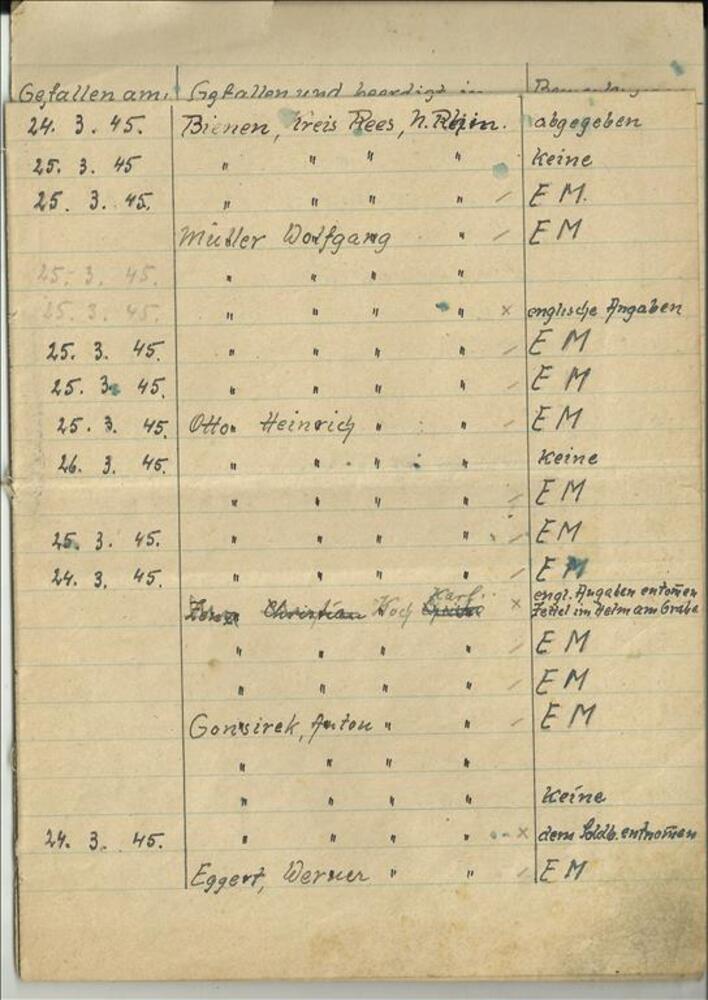 Gefallen am: Gefallen und beerdigt in
24. 3. 45. Bienen, Kreis Rees, N. Rhein. abgegeben
25. 3. 45 " " " " keine
25. 3. 45. " " " " / E M.
Müller Wolfgang " / E M
25. 3. 45. " " " "
25. 3. 45. " " " " x englische Angaben
25. 3. 45. " " " " / E M
25. 3. 45. " " " " / E M
25. 3. 45. Otto Heinrich " " / E M
26. 3. 45. " " " " keine
" " " " / E M
25. 3. 45. " " " " / E M
24. 3. 45. " " " " / E M
Karl engl. Angaben entnom̄en
Christian Koch x Zettel im Helm am Grabe
" " " " / E M
" " " " / E M
Gonsirek, Anton " " / E M
" " " "
" " " " keine
24. 3. 45. " " " " x dem Soldb. entnom̄en
Eggert, Werner " " / E M